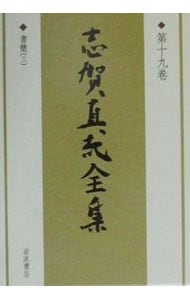 ◆第十九巻
志賀直哉全集
◆書簡(三)
岩波書店